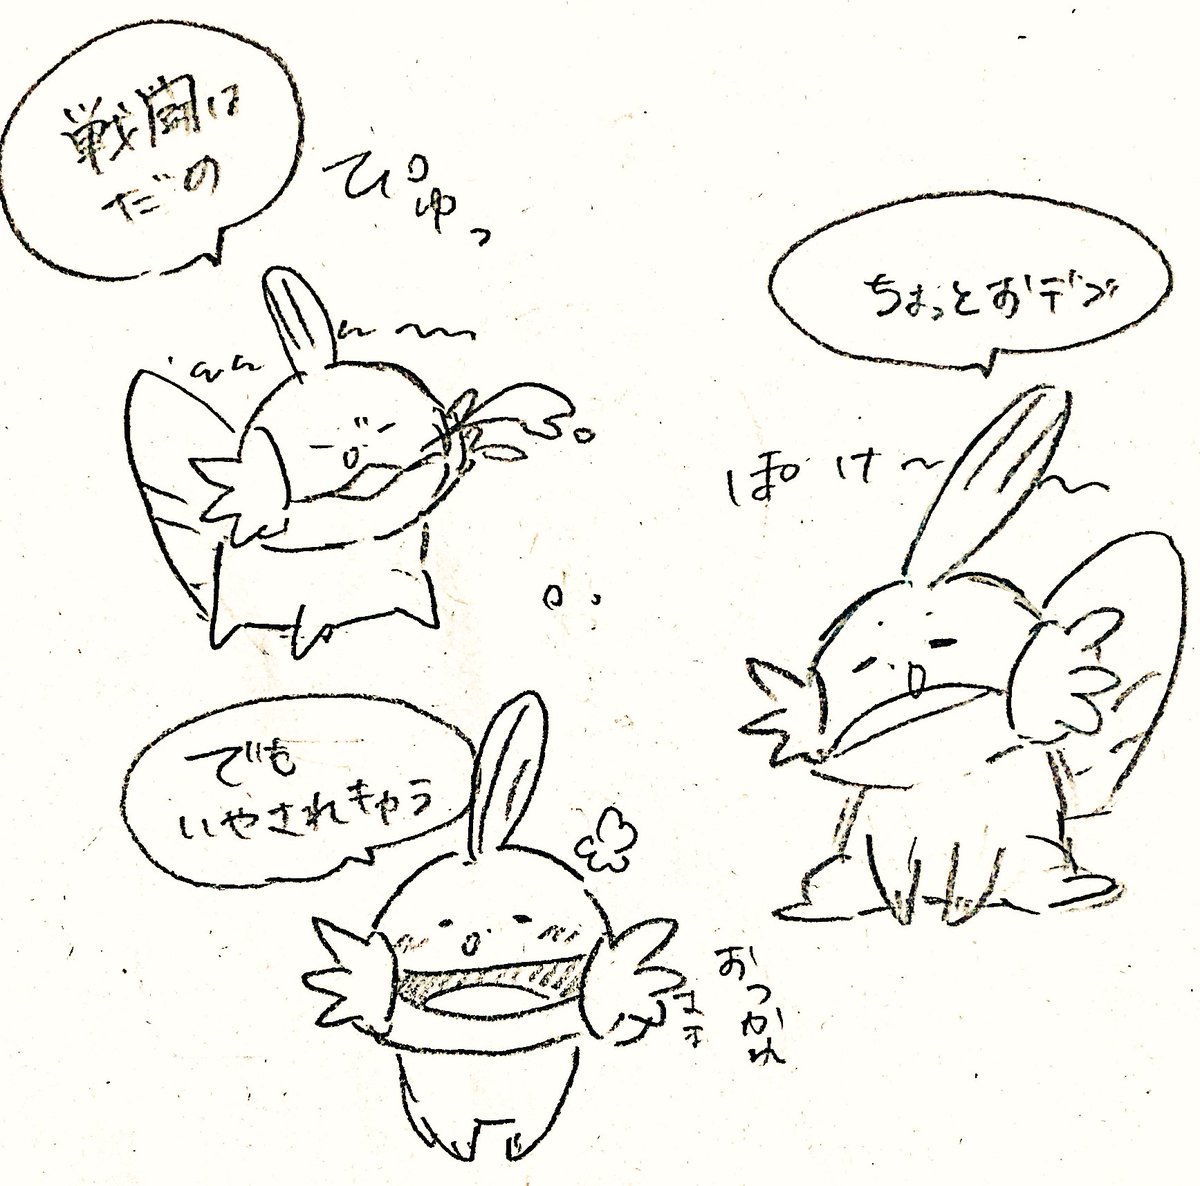 戦闘は
だめ
ぴゅっ
ちょっとおデブ
ぽけ〜
でも
いやされちゃう
おつかれ
さま